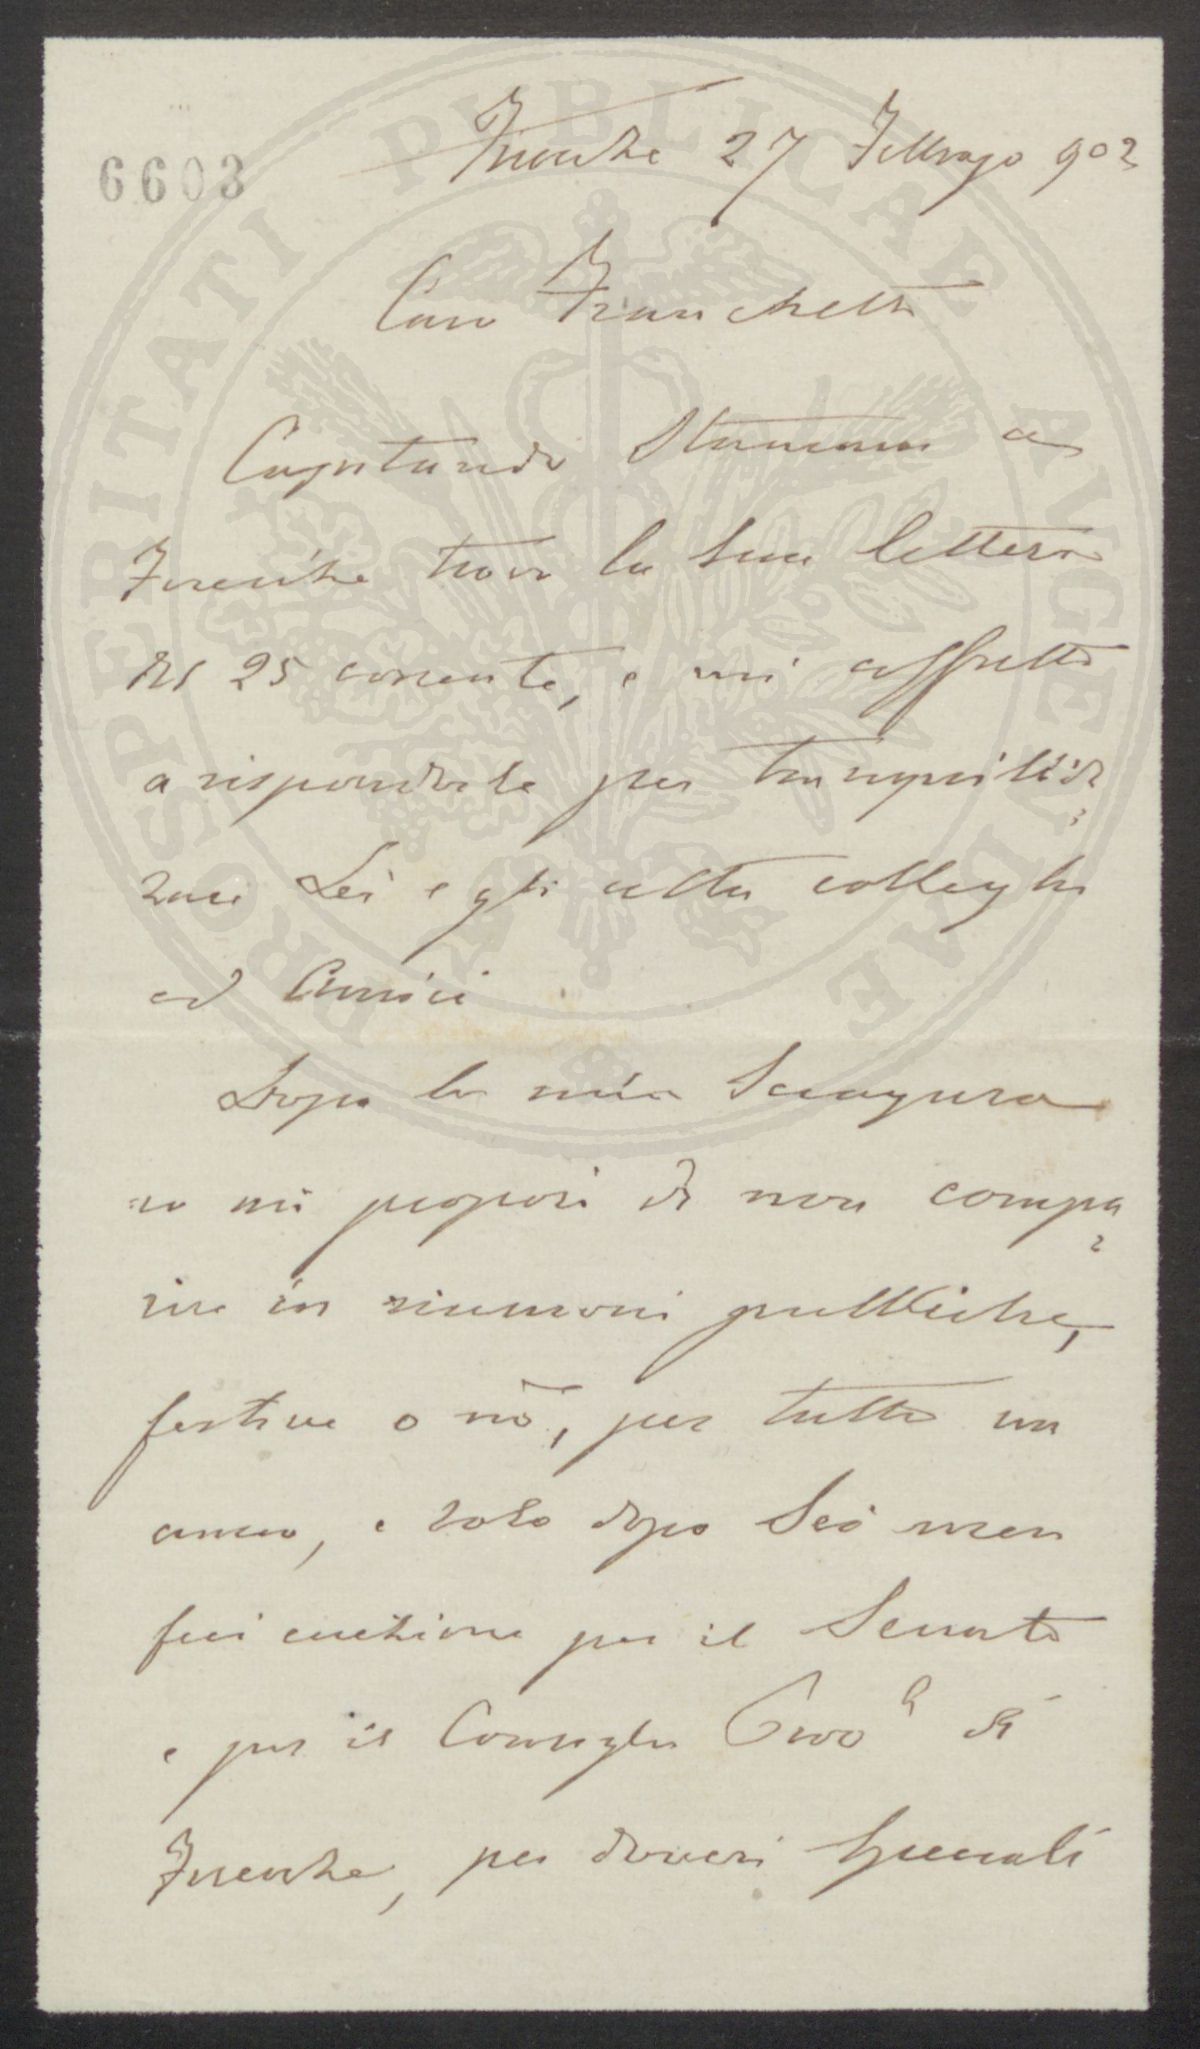 6603
Firenze 27 Febbrajo 902
Caro Franchetti
Capitando stamane a
Firenze trovo la sua lettera
del 25 corrente, e mi affretto
a risponderle per tranquiliz=
zare Lei e gli altri colleghi
ed Amici
Dopo la mia Sciagura
io mi proposi di non compa=
rire in riunioni pubbliche,
festive o nò, per tutto un
anno, e solo dopo Sei mesi
feci eccezione per il Senato
e per il Consiglio Provle di
Firenze, per doveri speciali
PROSPERITATI PUBLICAE AUGENDAE